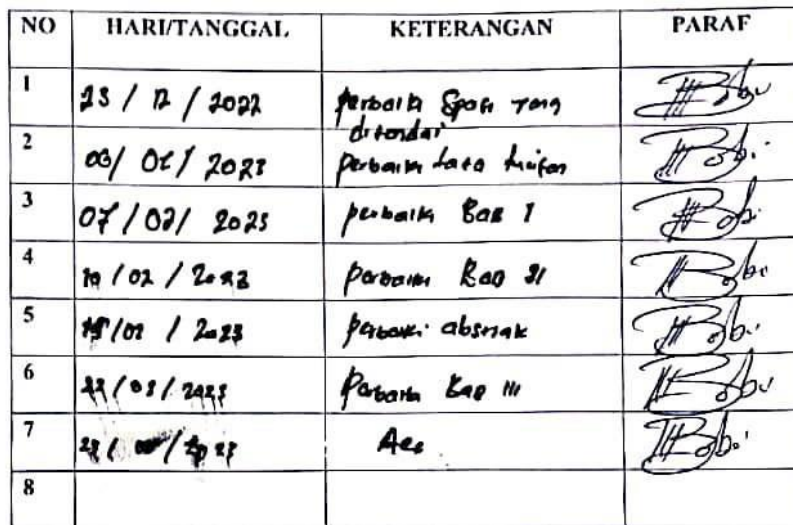 NO HARI/TANGGAL KETERANGAN PARAF
1 23 / 12 / 2022 perbaiki Spasi yang
ditandai
2 03/ 01/ 2023 perbaiki tata tulisan
3 07/02/ 2023 perbaiki BAB I
4 10/02/2023 perbaiki BAB II
5 /02 / 2023 perbaiki absrak
6 /03/2023 Perbaiki BAB III
7 Acc
8